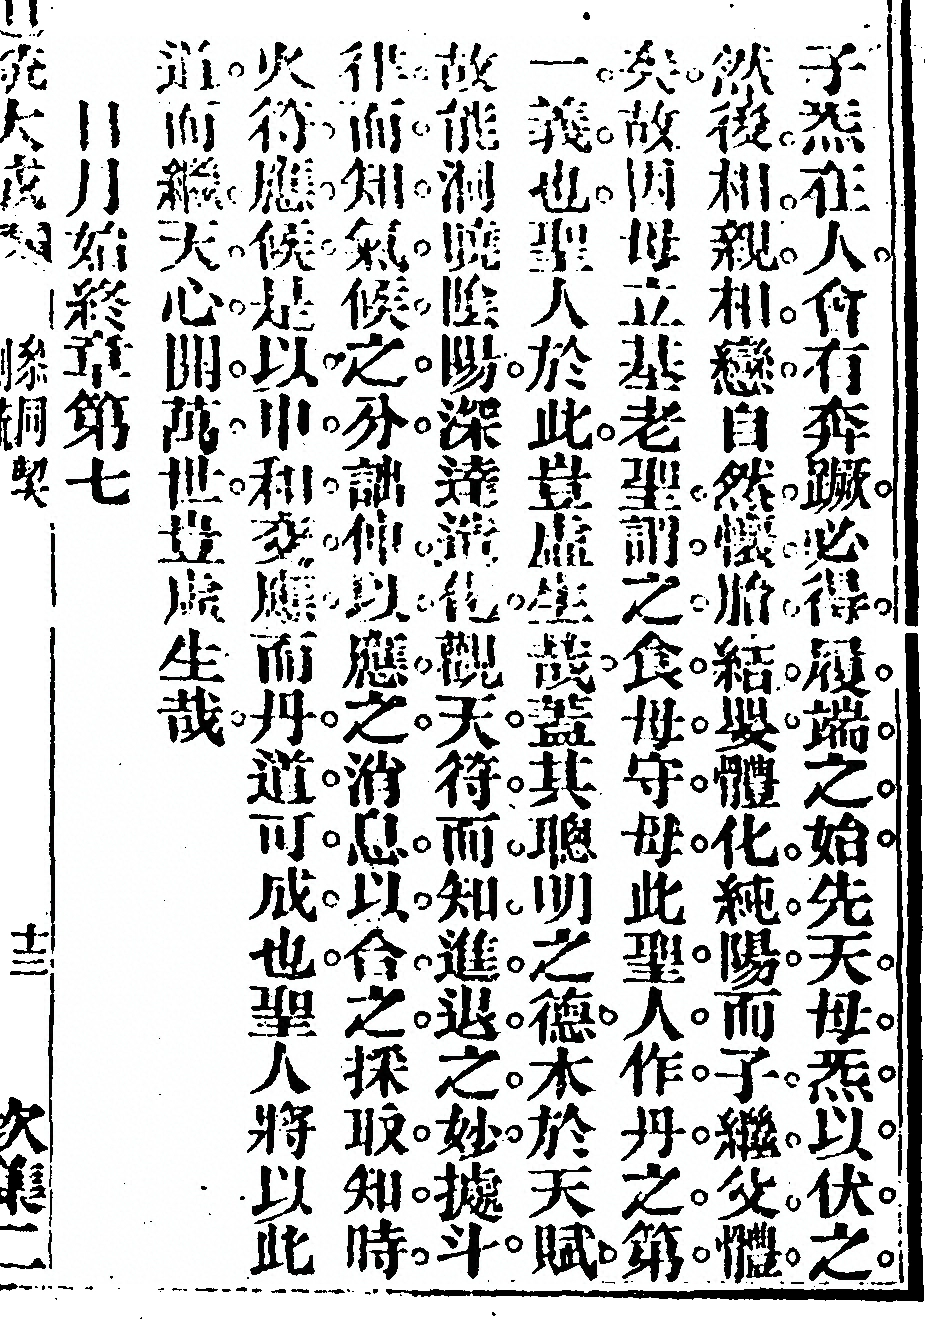 子炁在人會有奔蹶必得履端之始先天母炁以伏之
然後相親相戀自然懷胎結嬰體化純陽而子繼父體
矣故因母立基老聖謂之食母守母此聖人作丹之第
一義也聖人於此豈虛生哉蓋其聰明之德本於天賦
故能洞曉陰陽深達造化觀天符而知進退之妙據斗
律而知氣候之分詘伸以應之消息以合之採取知時
火符應候是以中和交應而丹道可成也聖人將以此
道而繼天心開萬世豈虛生哉
日月始終章第七
大成
參同契
十三
次集二